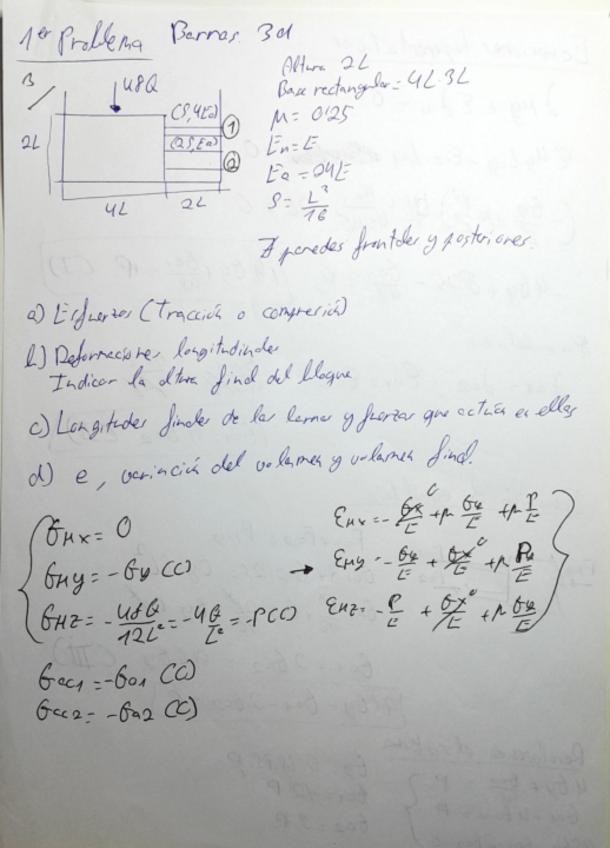 1er Problema Barras 3d
B
48Q
(S, 4Ea)
1
(2S, Ea)
2
2L
4L
2L
Altura 2L
Base rectangular = 4L·3L
μ = 0'25
En = E
Ea = 24E
S = L²/16
∄ paredes frontales y posteriores.
a) Esfuerzos (Tracción o compresión)
b) Deformaciones longitudinales
Indicar la altura final del bloque
c) Longitudes finales de las barras y fuerzas que actúan en ellas
d) e, variación del volumen y volumen final.
σHx = 0
σHy = -σy (C)
σHz = -48Q/12L² = -4Q/L² = -P (C)
εHx = -σx/E + μ σy/E + μ P/E
→ εHy = -σy/E + σx/E + μ P/E
εHz = -P/E + σx/E + μ σy/E
σac1 = -σa1 (C)
σac2 = -σa2 (C)